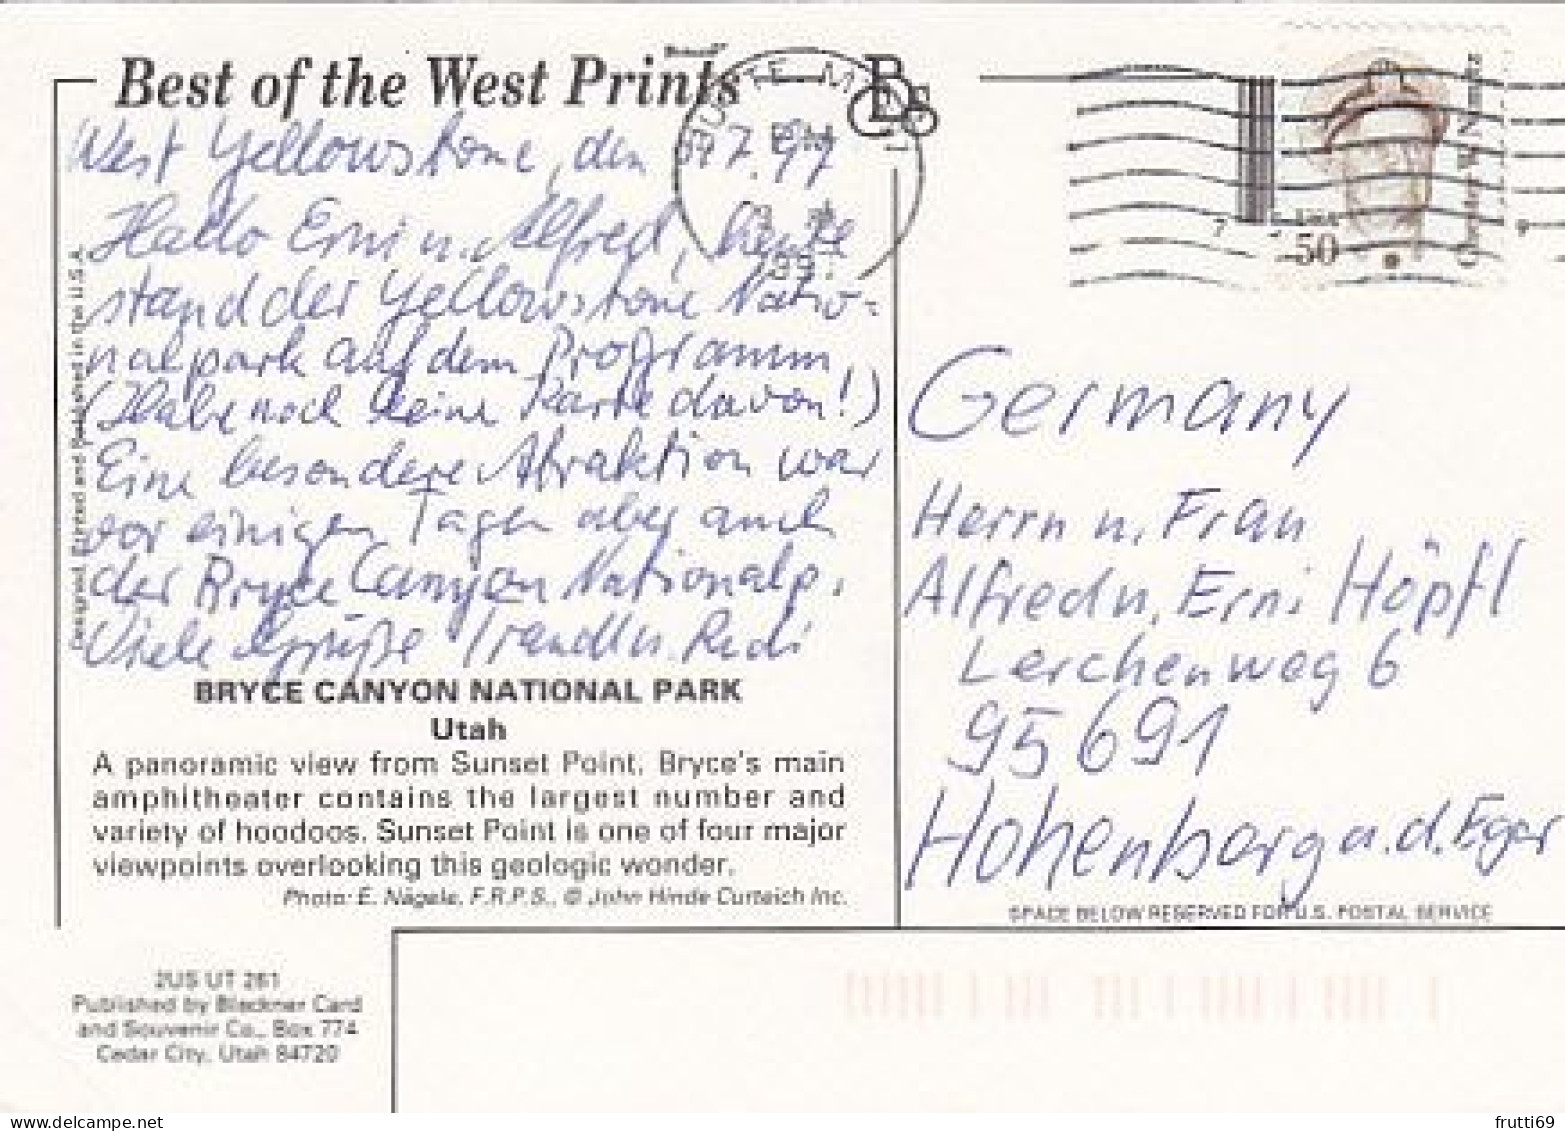 Best of the West Prints
West Yellowstone, den
Hallo Erni u. Alfred, heute
stand der Yellowstone Natio-
nalpark auf dem Programm
(Habe noch keine Karte davon!)
Eine besondere Attraktion war
vor einigen Tagen aber auch
der Bryce Canyon Nationalp.
Viele Grüße Traudl u. Rudi
BRYCE CANYON NATIONAL PARK
Utah
A panoramic view from Sunset Point. Bryce's main
amphitheater contains the largest number and
variety of hoodoos. Sunset Point is one of four major
viewpoints overlooking this geologic wonder.
Photo: E. Nägele, F.R.P.S., © John Hinde Curteich Inc.
Designed, Printed and Published in the U.S.A.
2US UT 261
Published by Blackner Card
and Souvenir Co., Box 774
Cedar City, Utah 84720
USA
50
Chester W. Nimitz
Germany
Herrn u. Frau
Alfred u. Erni Höpfl
Lerchenweg 6
95691
Hohenberg a.d. Eger
SPACE BELOW RESERVED FOR U.S. POSTAL SERVICE
frutti69